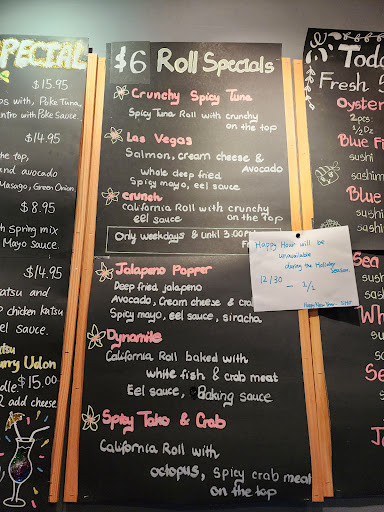 PECIAL
$15.95
os with, Poke Tuna,
ntro with Poke Sauce.
$14.95
the top,
and avocado
Masago, Green Onion
$8.95
th spring mix
Mayo Sauce.
$14.95
katsu and
chicken katsu
el sauce.
atsu
urry Udon
dle. $15.00
2 add cheese
$6 Roll Specials
Crunchy Spicy Tuna
Spicy Tuna Roll with crunchy
on the top
Las Vegas
Salmon, cream cheese &
Avocado
whole deep fried
Spicy mayo, eel sauce
crunch
California Roll with crunchy
eel sauce on the top
Only weekdays & until 3:00
Jalapeno Popper
Deep fried jalapeno
Avocado, Cream cheese & cra
Spicy mayo, eel sauce, siracha
Dynamite
California Roll baked with
white fish & crab meat
Eel sauce, Baking sauce
Spicy Tako & Crab
California Roll with
octopus, spicy crab meat
on the top
Happy Hour will be
unavailable
during the Holiday
Season.
12/30 - 2/2
Happy New Year
Toda
Fresh
Oyster
2pcs:
1/2 Dz
Blue Fi
sushi
sashim
Blue
sushi
sashi
Sea
sus
sa
Wh
su
S
S
Ja